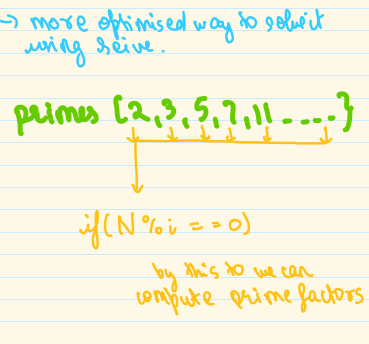 → more optimised way to solve it
using seive.
primes [2,3,5,7,11 ----- }
if(N % i == 0)
by this to we can
compute prime factors